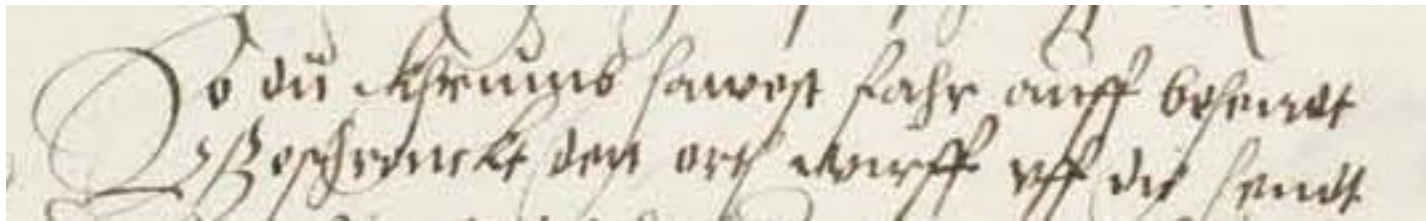 So dü Khrumb hawest fahr auff behendt
Geschrenckt den orth würff vff die hendt